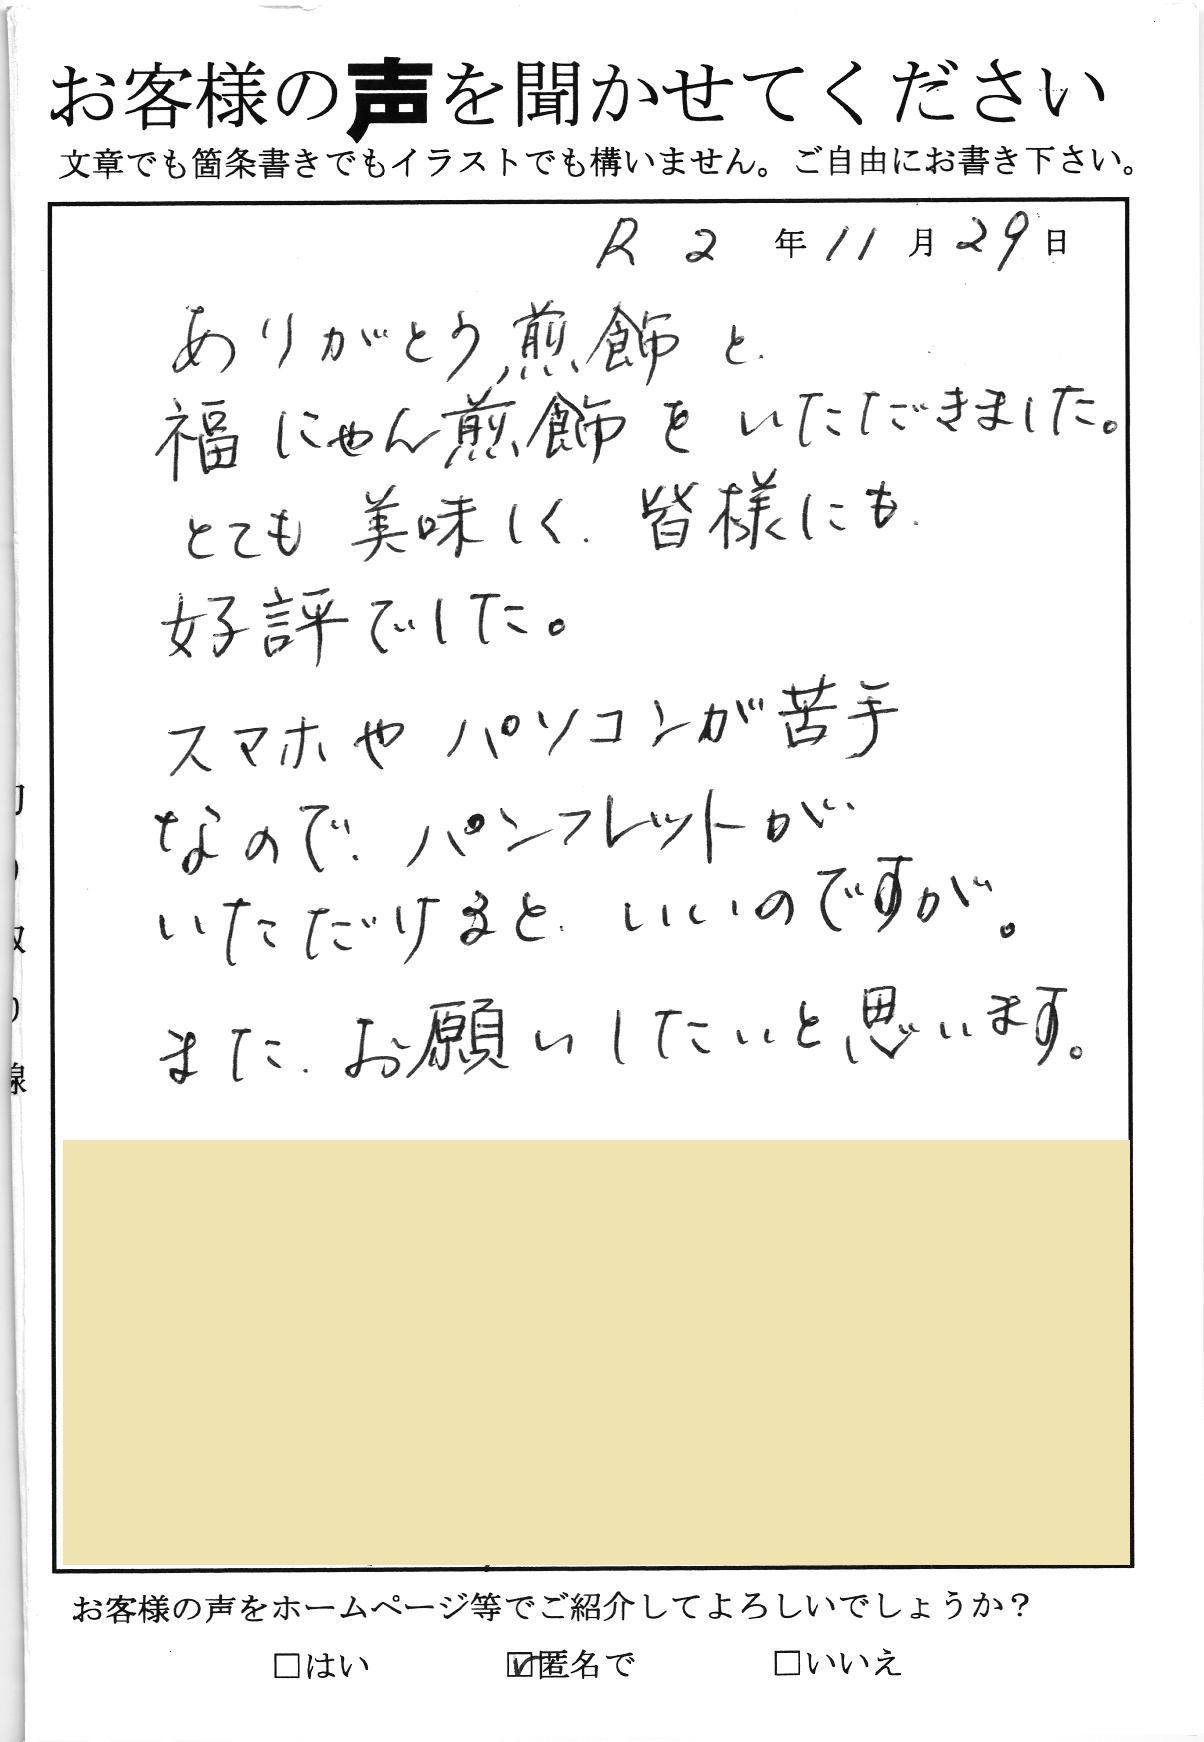 お客様の声を聞かせてください
文章でも箇条書きでもイラストでも構いません。ご自由にお書き下さい。
R2年11月29日
ありがとう煎飾と、
福にゃん煎飾をいただきました。
とても美味しく、皆様にも、
好評でした。
スマホやパソコンが苦手
なので、パンフレットが
いただけると、いいのですが。
また、お願いしたいと思います。
り
取
り
線
お客様の声をホームページ等でご紹介してよろしいでしょうか？
□はい ☑匿名で □いいえ